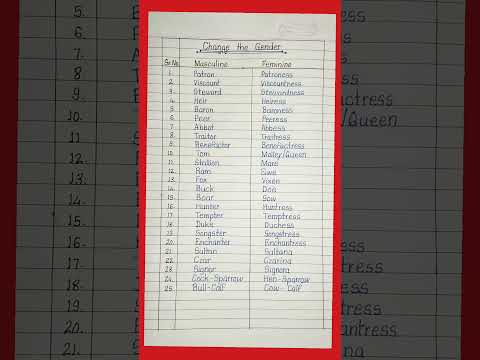 Change the Gender
Sr.No. Masculine Feminine
1. Patron Patroness
2. Viscount Viscountness
3. Steward Stewardness
4. Heir Heiress
5. Baron Baroness
6. Peer Peeress
7. Abbot Abbess
8. Traitor Traitress
9. Benefactor Benefactress
10. Tom Malley/Queen
11. Stallion Mare
12. Ram
13. Fox Vixen
14. Buck
15. Boar Sow
16. Hunter Huntress
17. Tempter Temptress
18. Duke Duchess
19. Songster Songstress
20. Enchanter Enchantress
21. Sultan Sultana
22. Czar Czarina
23. Signor Signora
24. Cock-Sparrow Hen-Sparrow
25. Bull-Calf Cow-Calf
5.
6.
7.
8.
9.
10.
11.
12.
13.
14.
15.
16.
17.
18.
19.
20.
21.